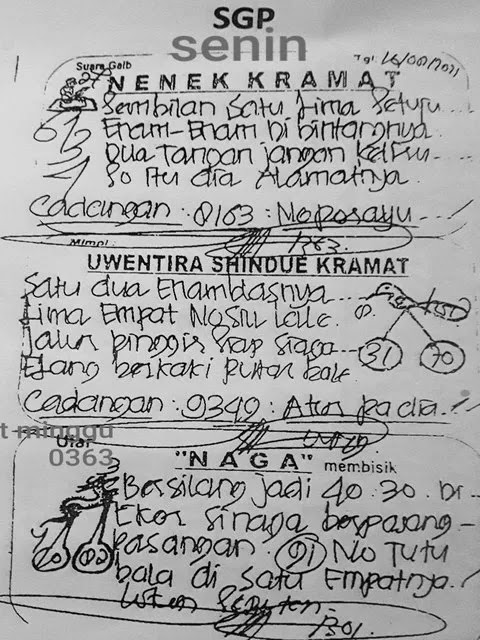 SGP
senin
Suara Gaib
NENEK KRAMAT
Sembilan Satu Lima Seturu
Enam-Enam Di bintangnya
Dua Tangan jangan keliru
So Itu dia Alamatnya
Cadangan : 8163 : Moposayu
1363.
Mimpi
UWENTIRA SHINDUE KRAMAT
Satu dua Enam
Lima Empat Nosiu lale
Jalur pinggir siap siaga
Elang berkaki putar bale
31 70
Cadangan : 9349 : Atur padia
t minggu
Utar
0363
"NAGA" membisik
Bersilang jadi 40.30. Di
Ekor sinaga berpasang-
pasangan. 91 No Tutu
bala di satu Empatnya
1301